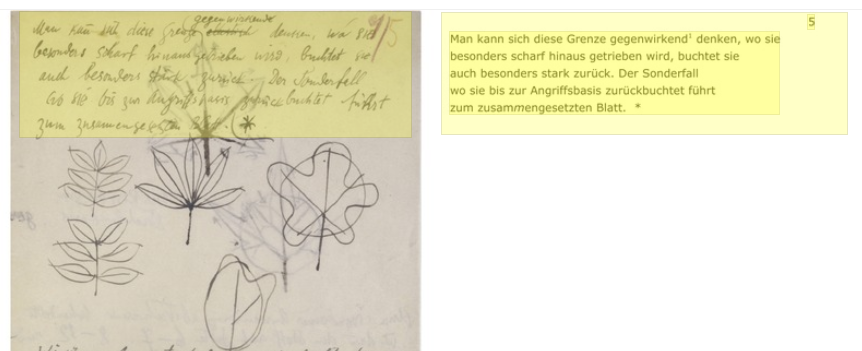 Man kann sich diese Grenze gegenwirkend denken, wo sie 9/5
besonders scharf hinaus getrieben wird, buchtet sie
auch besonders stark zurück. Der Sonderfall
wo sie bis zur Angriffsbasis zurückbuchtet führt
zum zusammengesetzten Blatt. *
5
Man kann sich diese Grenze gegenwirkend¹ denken, wo sie
besonders scharf hinaus getrieben wird, buchtet sie
auch besonders stark zurück. Der Sonderfall
wo sie bis zur Angriffsbasis zurückbuchtet führt
zum zusammengesetzten Blatt. *